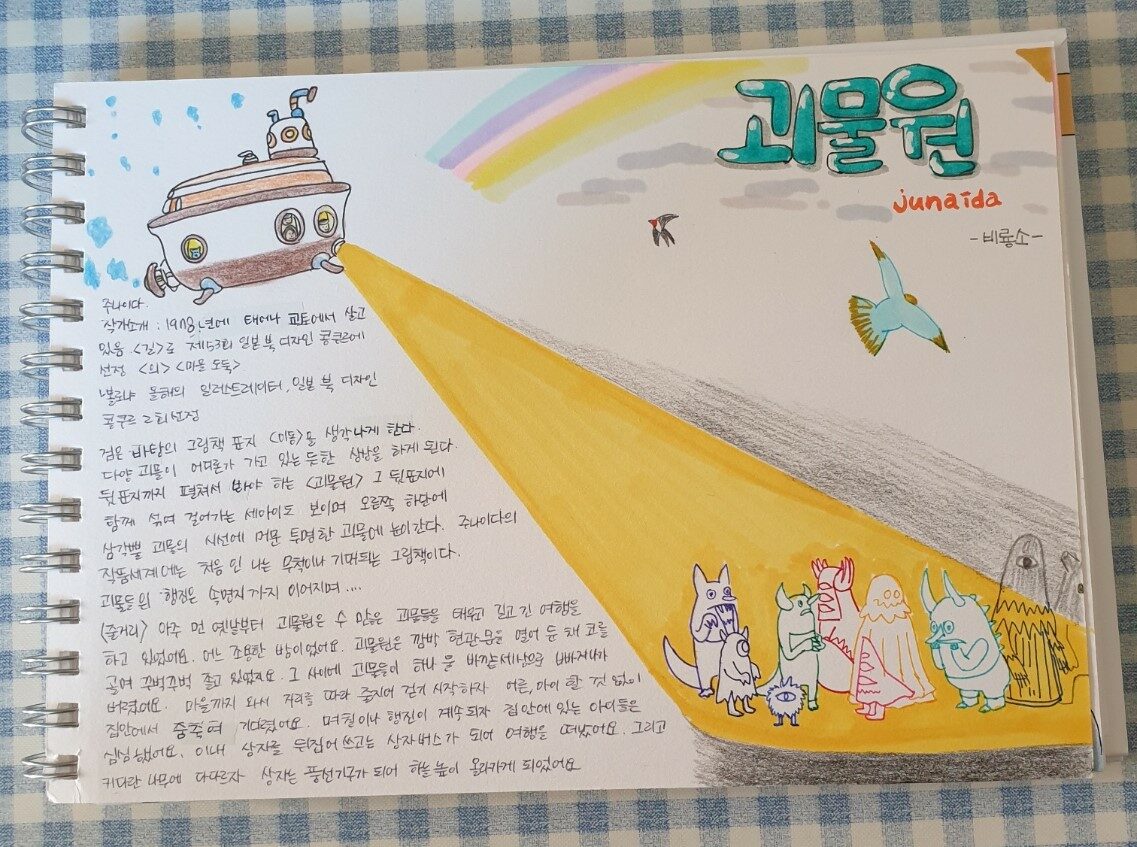 괴물원
junaida
-비룡소-
주나이다.
작가소개 : 1978년에 태어나 교토에서 살고
있음 <길>로 제53회 일본 북 디자인 콩쿠르에
선정 <의> <마음 도둑>
볼로냐 올해의 일러스트레이터, 일본 북 디자인
콩쿠르 2회 선정
검은 바탕의 그림책 표지 <미몽>을 생각나게 한다.
다양 괴물이 어디론가 가고 있는 듯한 상상을 하게 된다.
뒷표지까지 펼쳐서 봐야 하는 <괴물원> 그 뒷표지에
함께 섞여 걸어가는 세아이도 보이며 오른쪽 하단에
삼각뿔 괴물의 시선에 머문 투명한 괴물에 눈이간다. 주나이다의
작품세계에는 처음 인 나는 무척이나 기대되는 그림책이다.
괴물들의 행진은 속면지까지 이어지며....
(줄거리) 아주 먼 옛날부터 괴물원은 수 많은 괴물들을 태우고 길고 긴 여행을
하고 있었어요. 어느 조용한 밤이었어요. 괴물원은 깜박 현관문을 열어 둔 채 코를
골며 꾸벅꾸벅 졸고 있었지요. 그 사이에 괴물들이 하나 둘 바깥세상으로 빠져나가
버렸어요. 마을까지 와서 거리를 따라 줄지어 걷기 시작하자 어른,아이 할 것 없이
집안에서 숨죽여 기다렸어요. 며칠이나 행진이 계속되자 집안에 있는 아이들은
심심했어요. 이내 상자를 뒤집어 쓰고는 상자버스가 되어 여행을 떠났어요. 그리고
커다란 나무에 다다르자 상자는 풍선기구가 되어 하늘 높이 올라가게 되었어요